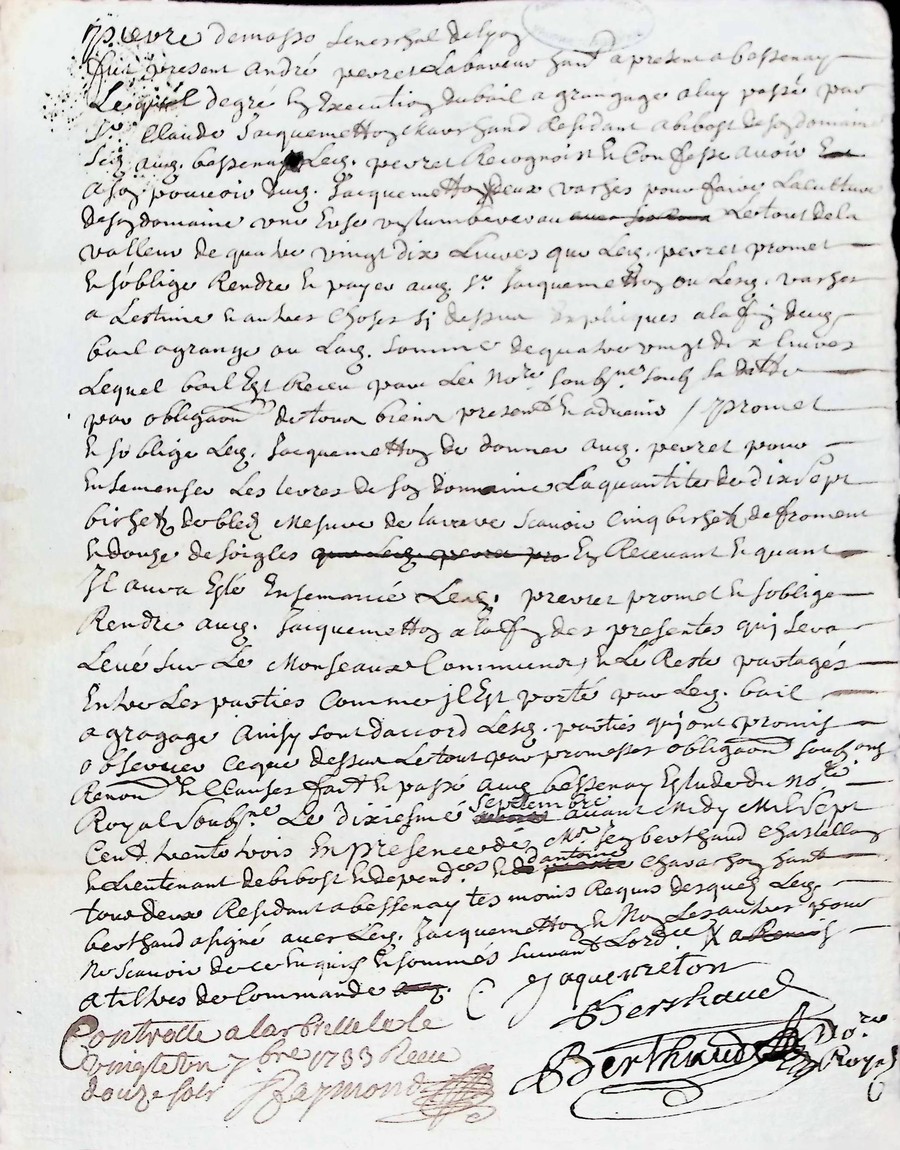 pierre demasso seneschal de lyon
fut present andré pevret labaveur hant a present a bessenay
Lequel degré en Execution du bail a grangage a luy passé par
Sr Claude Jacquemetton marchand Residant a bibost de son domaine
scis aud. bessenay Led. pevret Recognoist et Confesse avoir
a son pouvoir dud. Jacquemetton deux vaches pour faire La culture
de son domaine une
valleur de quatre vingt dix Livres que Led. pevret promet
et s'oblige Rendre et payer aud. Sr Jacquemetton ou Lesd. vaches
a Lestime et autres choses sy dessus Expliquées a la fin dud.
bail a grange ou Lad. somme de quatre vingt dix livres
Lequel bail Est Receu par Le Nore soubsne soub sa datte
par obligaõn de tous biens presents et advenir / promet
et s'oblige Led. Jacquemetton de donner aud. pevret pour
Ensemenser Les terres de son domaine La quantité de dix sept
bichets de bled Mesure de larave scavoir Cinq bichets de froment
et douze de soigles que Led. pevret pro En Recevant et quant
Il aura Esté Ensemancé Led. pevret promet et s'oblige
Rendre aud. Jacquemetton a la fin des presentes quy sera
Levé sur Le Monseaux Communs, et Le Reste partagés
Entre Les parties Comme il Est porté par Led. bail
a gragage Ainsy sont daccord Lesd. parties quy ont promis
observer ce que dessus Le tout par promesses obligaõn soub
Renonõn et Clauses fait et passé aud. bessenay Estude du Nore
Royal Soubsne Le dixiesme septembre avant Midy Mil Sept
Cent trente trois En presence de Mre Jean berthaud Chastellain
et Lieutenant de bibost et dependces et d'antoine Chavasson hant
tous deux Residant a bessenay tesmoins Requis desquels Led.
berthaud a signé avec Led. Jacquemetton et Non Les autres pour
ne scavoir de ce Enquis et sommés suivant Lordce
a tiltres de Commande
Jaquemeton
Bershaud
Controllé a larbrelle le
vingt et un 7bre 1733 Receu
douze sols Raymond
Berthaud Nore Royal